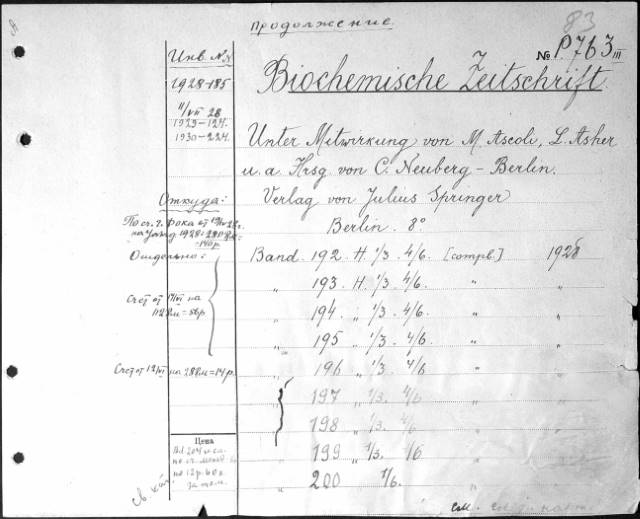 продолжение.
83
№ P763 III
Инв. №
1928-185
11/VII 28
1929-124.
1930-224.
Biochemische Zeitschrift.
Unter Mitwirkung von M. Ascoli, L. Asher
u. a. Hrsg. von C. Neuberg - Berlin.
Verlag von Julius Springer
Berlin. 8°
Откуда:
По сч. г. Фока от
на узанд 1928
Отдельно:
Band. 192 H. 1/3. 4/6. [compl.] 1928
" 193. H. 1/3. 4/6. " "
" 194. " 1/3. 4/6. " "
Счет от на
" 195 " 1/3. 4/6. " "
Счет от 12/VII на 28 м = 14 р.
" 196 " 1/3. 4/6 " "
" 197 " 1/3. 4/6. " "
" 198 " 1/3. 4/6. " "
Цена
" 199 " 1/3. 4/6 " "
по 12 р. 60 к
за том.
" 200 1/6. " "
св. кат.
см.